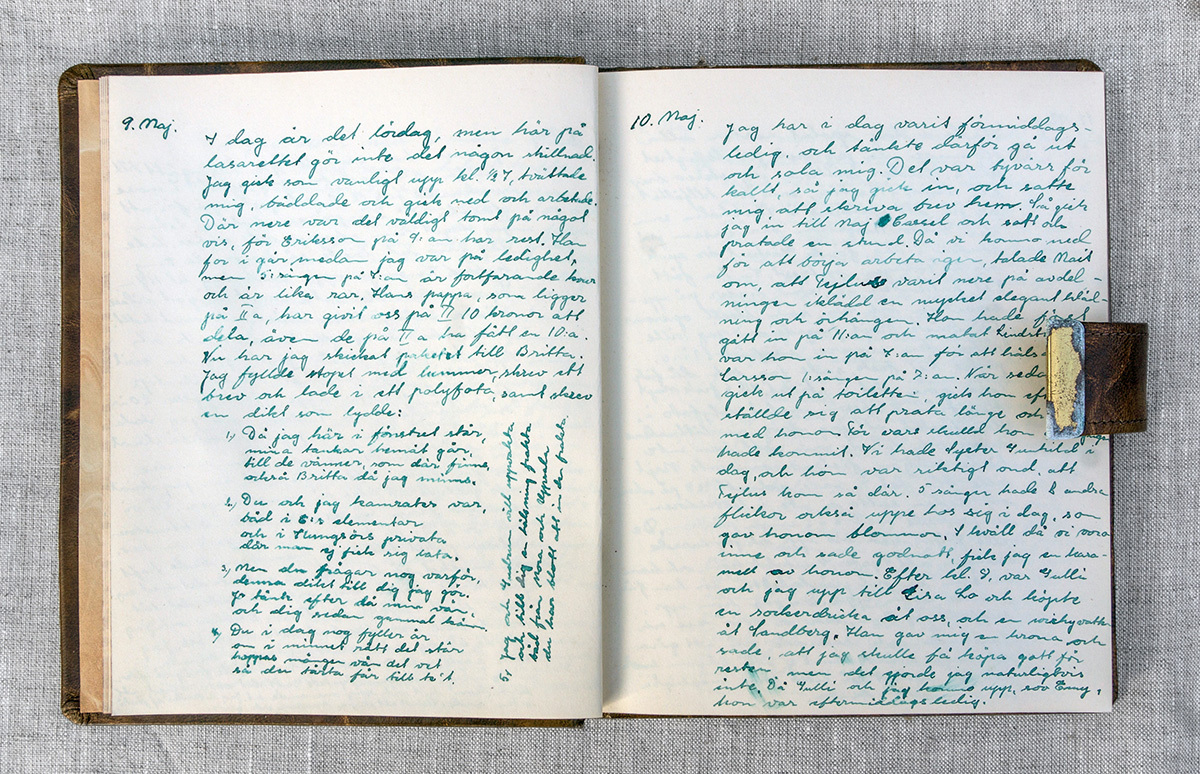 9. Maj.
I dag är det lördag, men här på
lasarettet gör inte det någon skillnad.
Jag gick som vanligt upp kl. ½7, tvättade
mig, bäddade och gick ned och arbetade.
Där nere var det väldigt tomt på något
vis, för Eriksson på 7:an har rest. Han
for i går medan jag var på ledighet,
men 5:sängen på 7:an är fortfarande kvar
och är lika rar. Hans pappa, som ligger
på II a, har givit oss på II 10 kronor att
dela, även de på II a ha fått en 10:a.
Nu har jag skickat paketet till Britta.
Jag fyllde stopet med lummer, skrev ett
brev och lade i ett polyfoto, samt skrev
en dikt som lydde:
1) Då jag här i fönstret står,
mina tankar hemåt går.
till de vänner, som där finns,
också Britta då jag minns.
2) Du och jag kamrater var,
båd i E:s elementar
och i Kungsörs privata
där man ej fick sig lata.
3) Men du frågar nog varför,
denna dikt till dig jag gör.
Jo tänk efter då min vän,
och dig sedan gammal
4) Du i dag nog fyller år
om i minnet rätt det står
hoppas mången vän det vet
så du tårta får till te't.
5) Jag och Gudrun vill uppvakta
och till dig en hälsning frakta
båd från Mora och Uppsala
du har blott att inder
10. Maj.
Jag har i dag varit förmiddags-
ledig, och tänkte därför gå ut
och sola mig. Det var tyvärr för
kallt, så jag gick in, och satte
mig att skriva brev hem. Så gick
jag in till Maj Cassel och satt och
pratade en stund. Då vi kommo ned
för att börja arbeta igen, talade Mait
om, att Tejlus varit nere på avdel-
ningen iklädd en mycket elegant kläd-
ning och örhängen. Hon hade först
gått in på 11:an och matat Lindst
var hon in på 7:an för att häls
Larsson 1:sängen på 7:an. När seda
gick ut på toiletten, gick hon ef
ställde sig att prata länge och
med honom för vars skulle hon
hade kommit. Vi hade Syster Gunhild i
dag, och hon var riktigt ond, att
Tejlus kom så där. 5 sängen hade 2 andra
flickor också uppe hos sig i dag, som
gav honom blommor. I kväll då vi voro
inne och sade godnatt, fick jag en kara-
mell av honom. Efter kl. 8, var Gulli
och jag upp till Lisa Lo och köpte
en sockerdricka åt oss, och en vichyvatten
åt Sandberg. Han gav mig en krona och
sade, att jag skulle få köpa gott för
resten, men det gjorde jag naturligtvis
inte. Då Gulli och jag kommo upp, sov Emy,
hon var eftermiddagsledig.